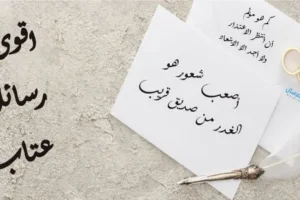 أقوى
رسائل
عتاب
كم هو مؤلم
أن أنتظر الاعتذار
ولا أجد إلا الابتعاد
أصعب شعور هو
الغدر من صديق قريب